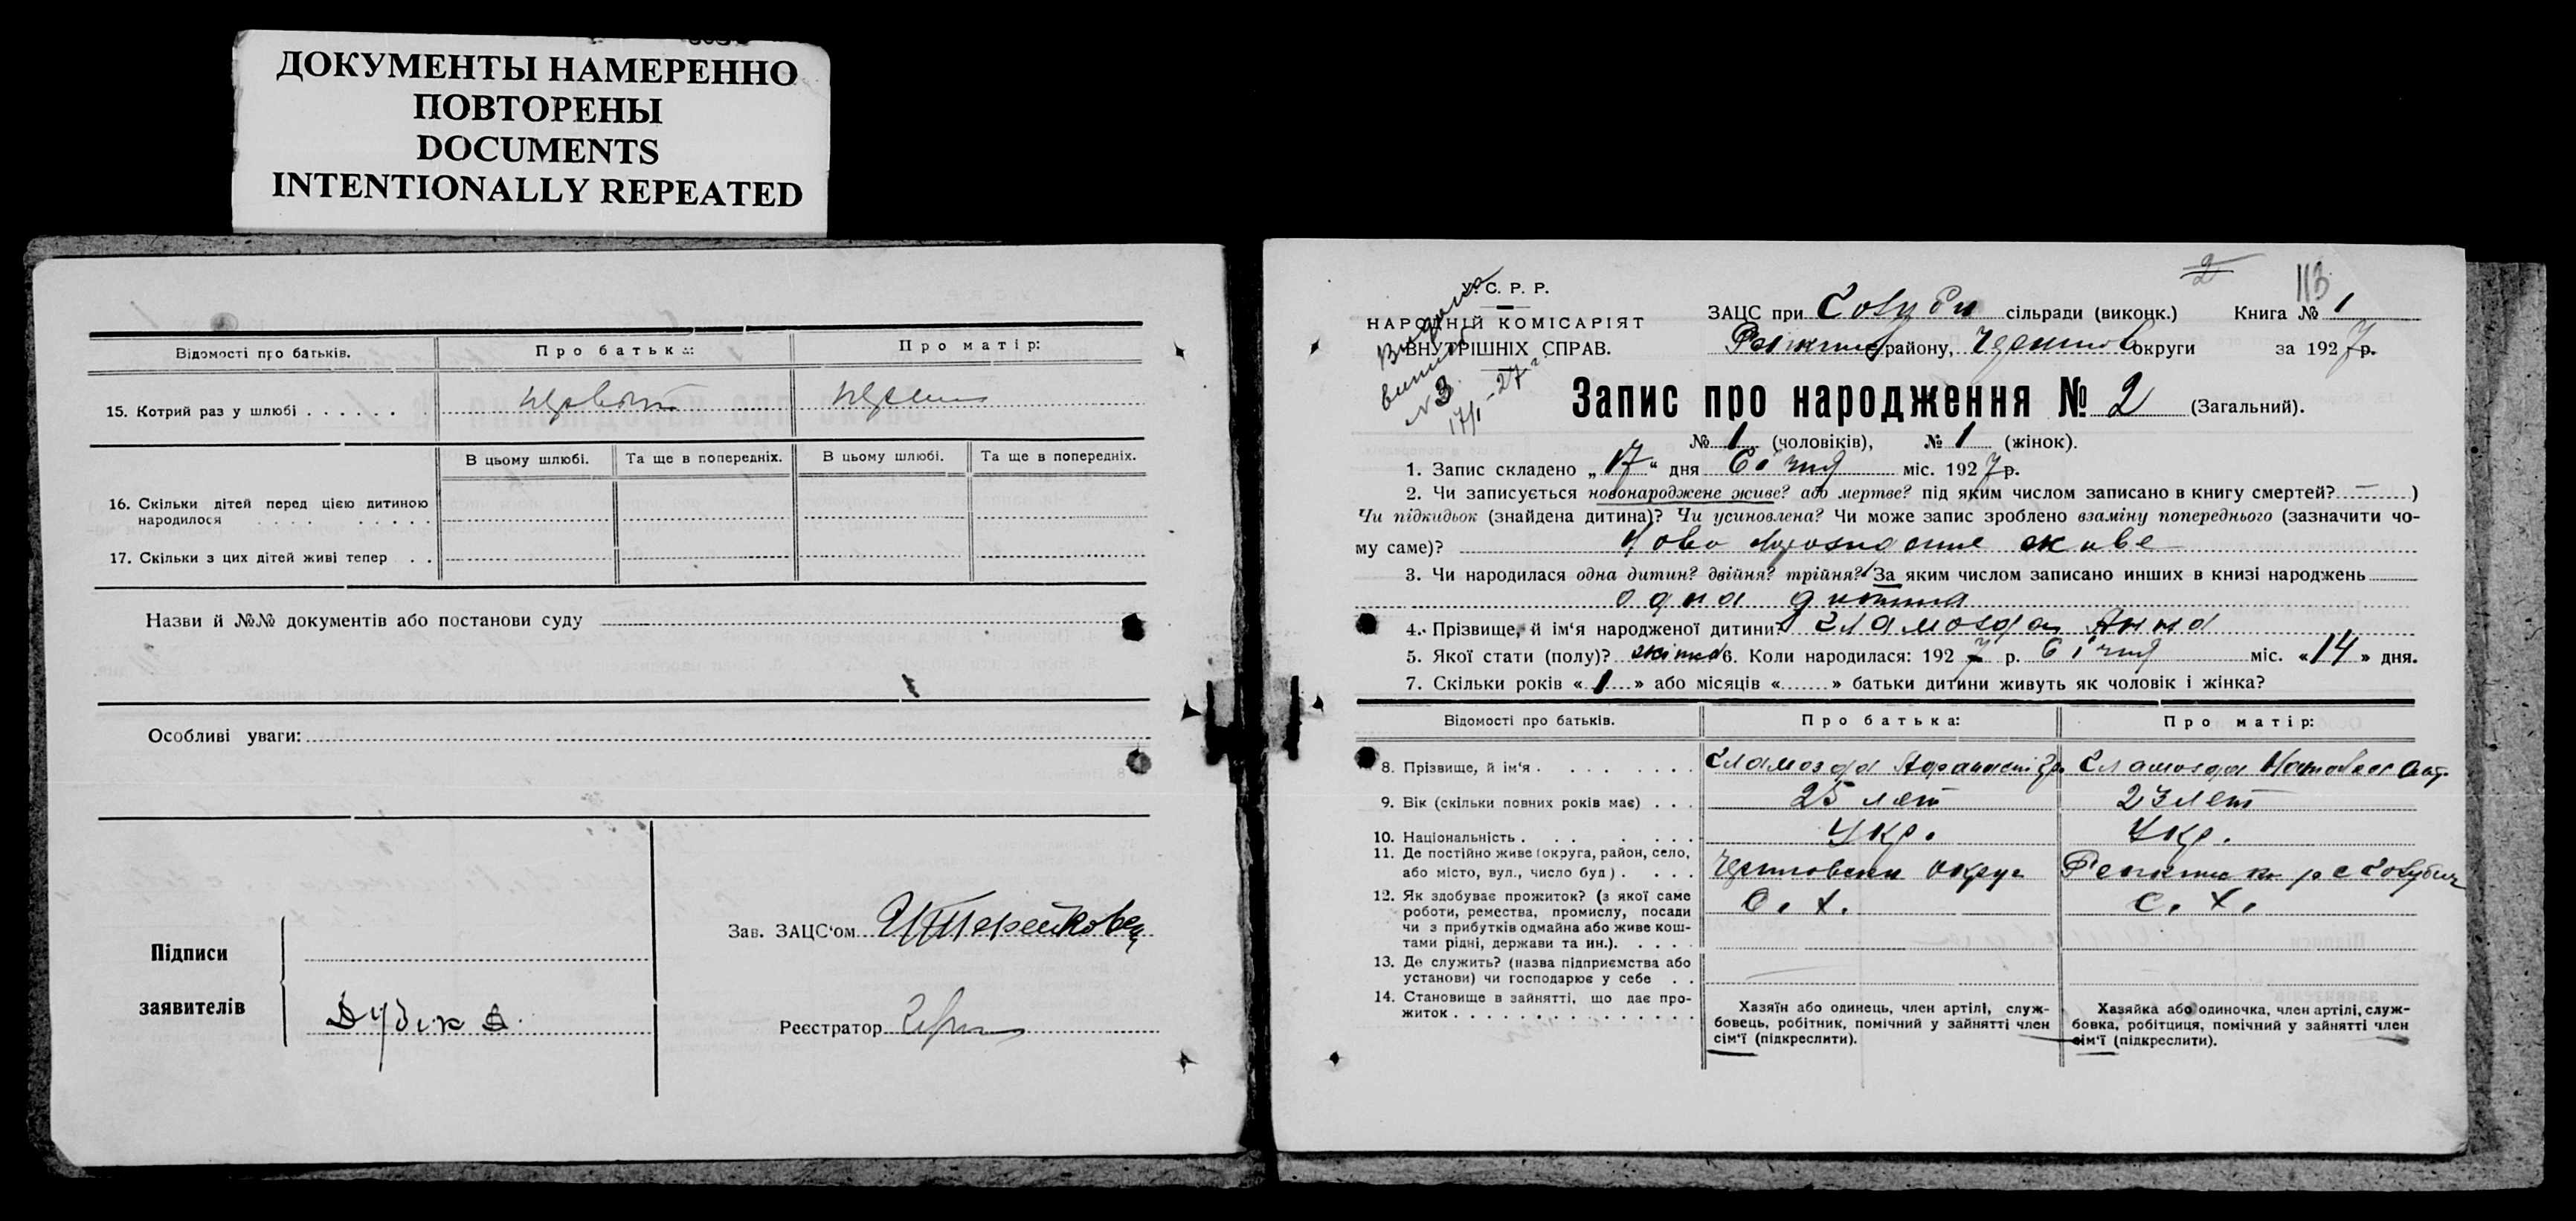 ДОКУМЕНТЫ НАМЕРЕННО
ПОВТОРЕНЫ
DOCUMENTS
INTENTIONALLY REPEATED
Відомості про батьків.
Про батька:
Про матір:
15. Котрий раз у шлюбі
В цьому шлюбі. Та ще в попередніх. В цьому шлюбі. Та ще в попередніх.
16. Скільки дітей перед цією дитиною
народилося
17. Скільки з цих дітей живі тепер
Назви й №№ документів або постанови суду
Особливі уваги:
Підписи
заявителів
Дудік
Зав. ЗАЦС‘ом
Реєстратор
2
113
У. С. Р. Р.
НАРОДНІЙ КОМІСАРІЯТ
ВНУТРІШНІХ СПРАВ.
Видана
випись
№ 3
17/1-27 г.
ЗАЦС при сільради (виконк.) Книга № 1
району, округи за 1927р.
Запис про народження № 2 (Загальний).
№ 1 (чоловіків), № 1 (жінок).
1. Запис складено „17“ дня Січня міс. 1927р.
2. Чи записується новонароджене живе? або мертве? під яким числом записано в книгу смертей? — )
Чи підкидьок (знайдена дитина)? Чи усиновлена? Чи може запис зроблено взаміну попереднього (зазначити чо-
му саме)? живе
3. Чи народилася одна дитин? двійня? трійня? За яким числом записано инших в книзі народжень
одна дитина
4. Прізвище, й ім‘я народженої дитини? Анна
5. Якої стати (полу)? 6. Коли народилася: 1927 р. Січня міс. «14» дня.
7. Скільки років «1» або місяців «......» батьки дитини живуть як чоловік і жінка?
Відомості про батьків.
Про батька:
Про матір:
8. Прізвище, й ім‘я
9. Вік (скільки повних років має) 25 лет 23 лет
10. Національність Укр. Укр.
11. Де постійно живе (округа, район, село,
або місто, вул., число буд)
12. Як здобуває прожиток? (з якої саме С. Х. С. Х.
роботи, ремества, промислу, посади
чи з прибутків одмайна або живе кош-
тами рідні, держави та ин.).
13. Де служить? (назва підприємства або
установи) чи господарює у себе
14. Становище в зайнятті, що дає про-
житок
Хазяїн або одинець, член артілі, служ-
бовець, робітник, помічний у зайнятті член
сім‘ї (підкреслити).
Хазяйка або одиночка, член артілі, служ-
бовка, робітниця, помічний у зайнятті член
сім‘ї (підкреслити).